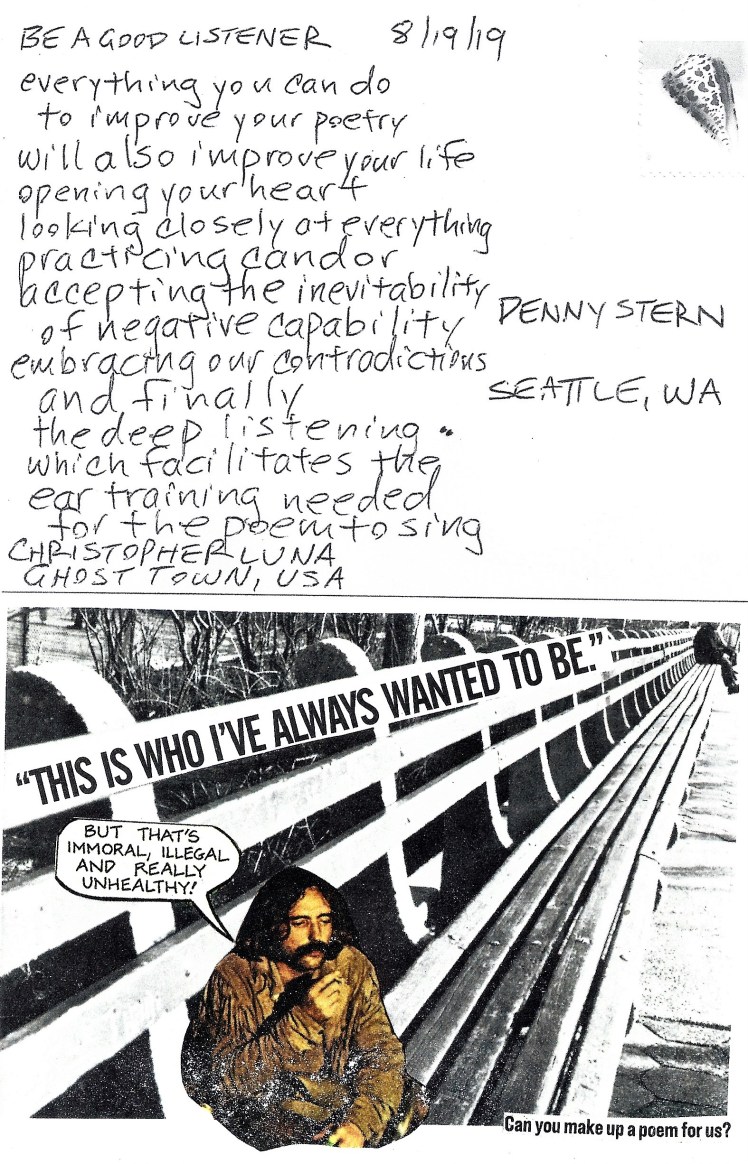 BE A GOOD LISTENER 8/19/19
everything you can do
to improve your poetry
will also improve your life
opening your heart
looking closely at everything
practicing candor
accepting the inevitability
of negative capability
embracing our contradictions
and finally
the deep listening
which facilitates the
ear training needed
for the poem to sing
CHRISTOPHER LUNA
GHOST TOWN, USA
PENNY STERN
SEATTLE, WA
“THIS IS WHO I’VE ALWAYS WANTED TO BE.”
BUT THAT'S
IMMORAL, ILLEGAL
AND REALLY
UNHEALTHY!
Can you make up a poem for us?